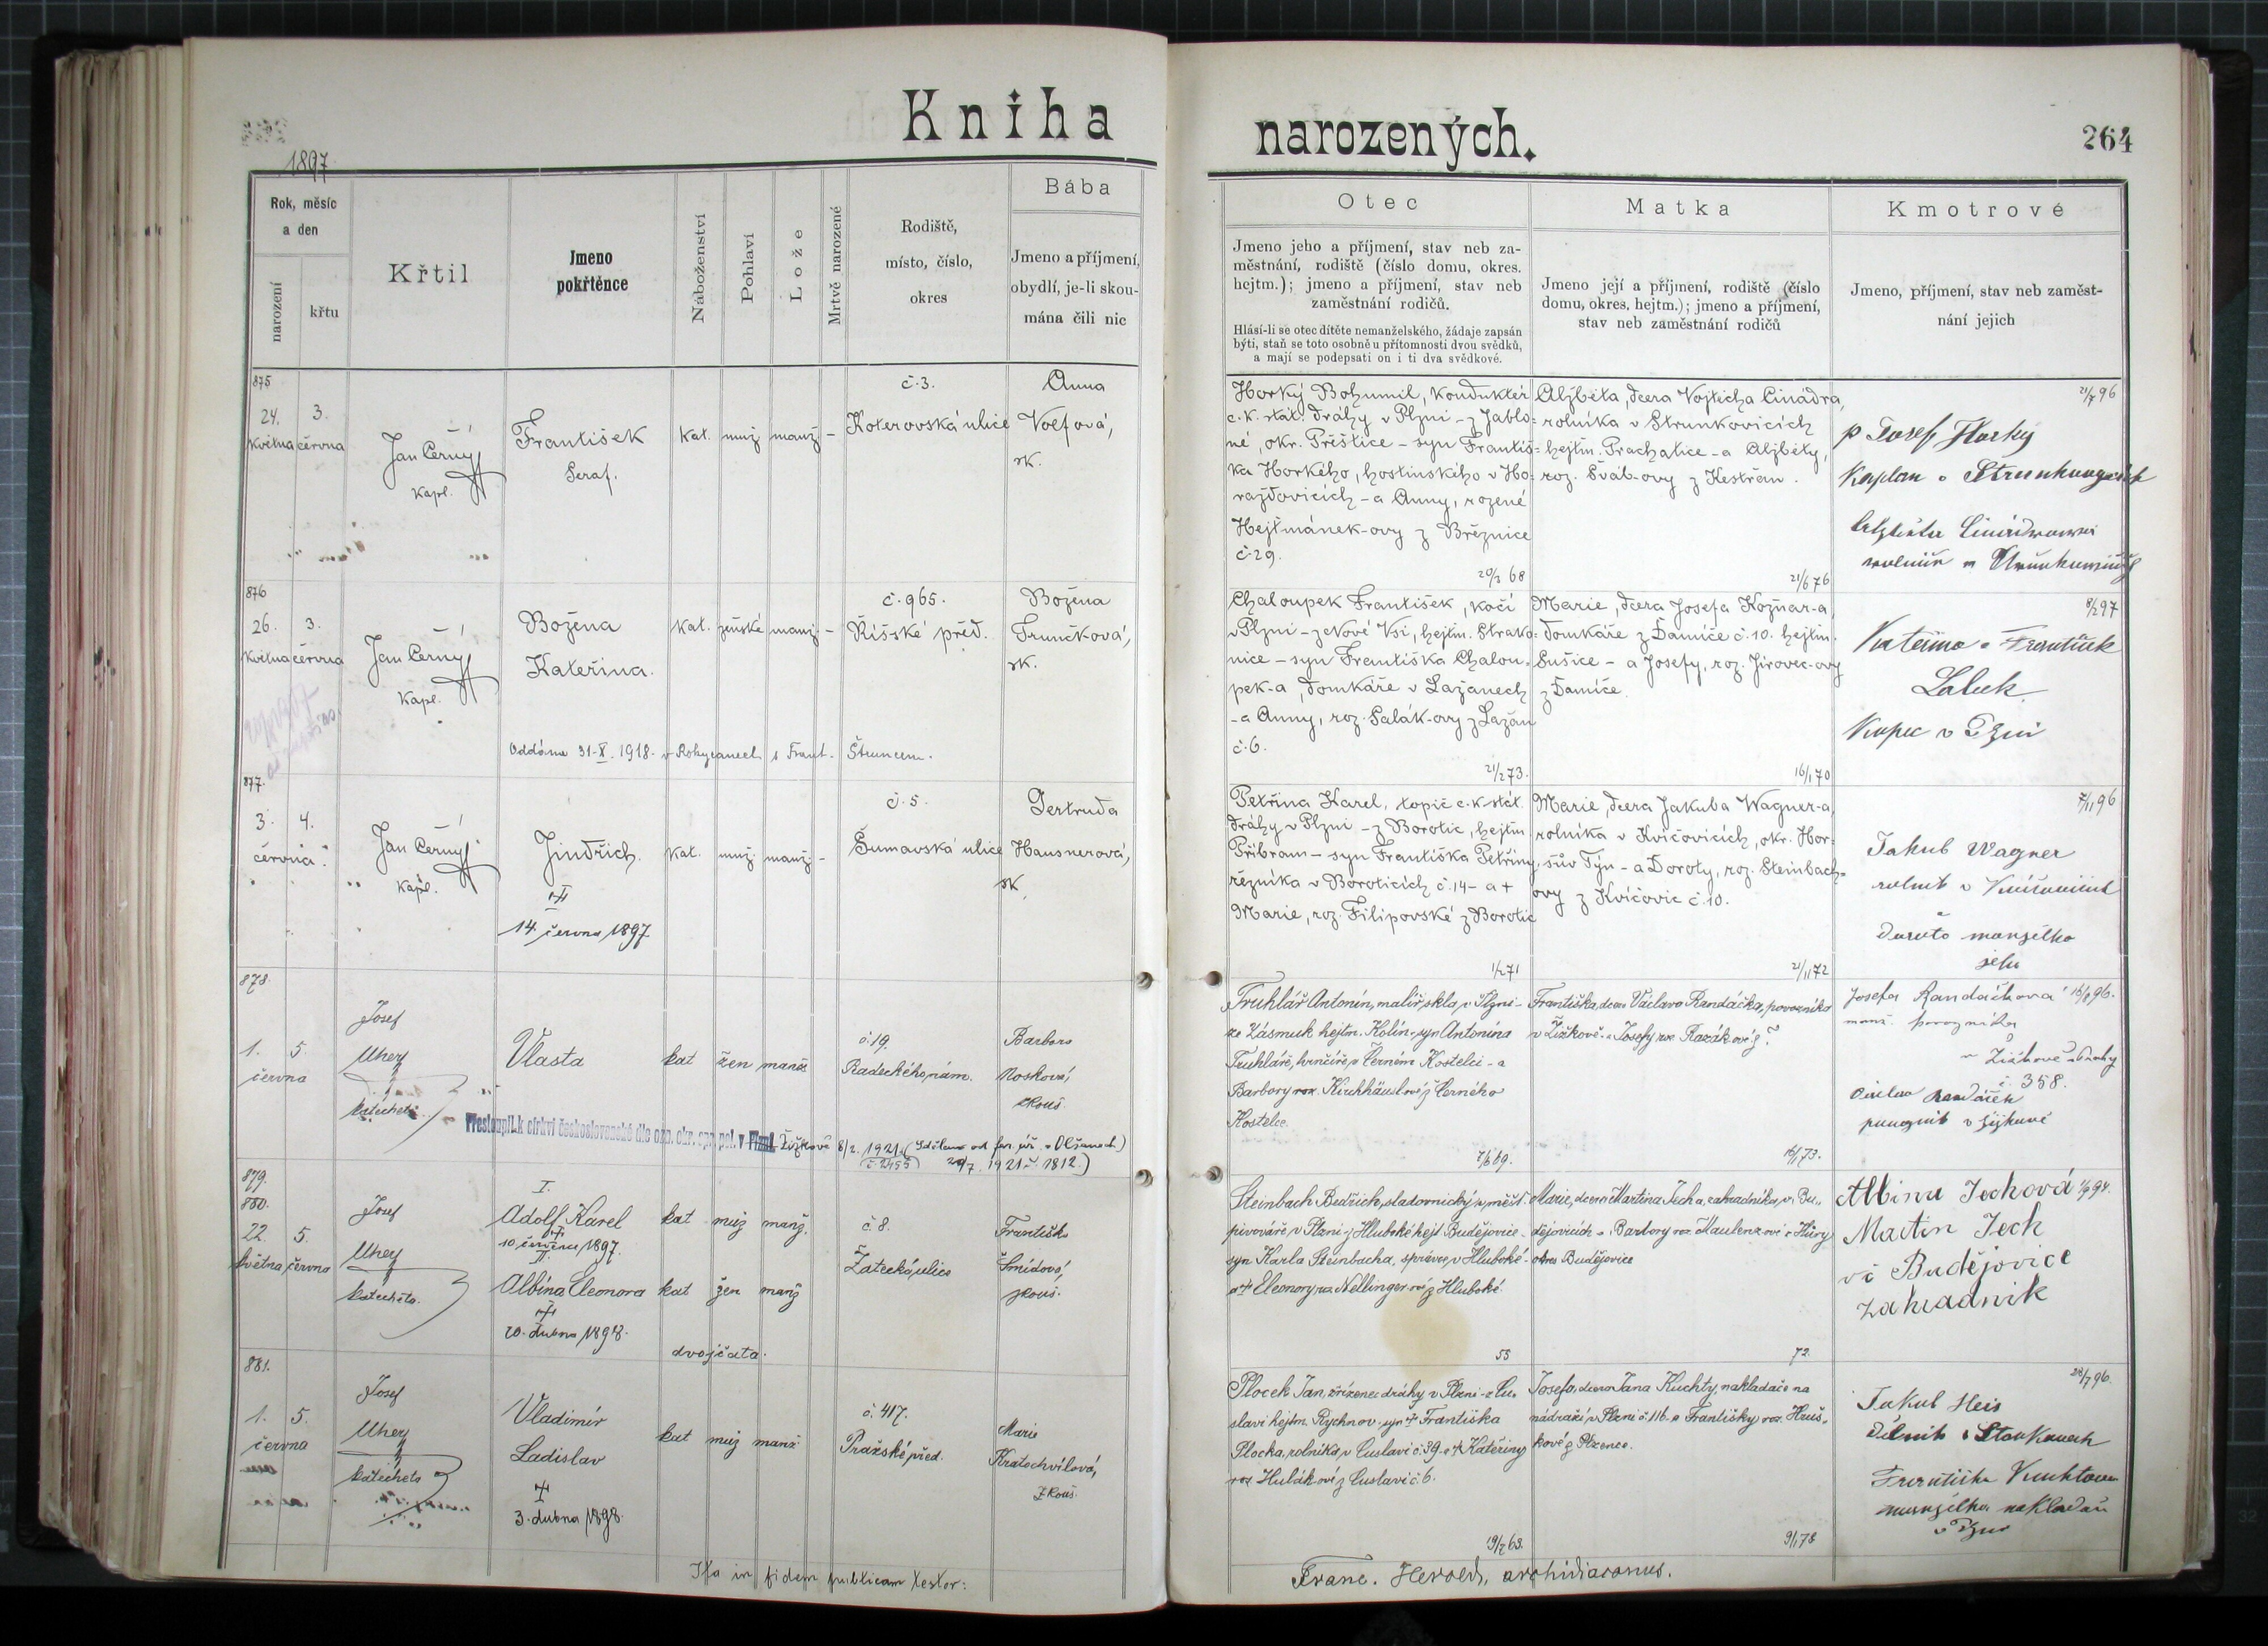 Kniha
narozených.
264
1897
Rok, měsíc
a den
narození
křtu
Křtil
Jmeno
pokřtěnce
Náboženství
Pohlaví
Lože
Mrtvě narozené
Rodiště,
místo, číslo,
okres
Bába
Jmeno a příjmení,
obydlí, je-li skou-
mána čili nic
Otec
Jmeno jeho a příjmení, stav neb za-
městnání, rodiště (číslo domu, okres.
hejtm.); jmeno a příjmení, stav neb
zaměstnání rodičů.
Hlásí-li se otec dítěte nemanželského, žádaje zapsán
býti, staň se toto osobně u přítomnosti dvou svědků,
a mají se podepsati on i ti dva svědkové.
Matka
Jmeno její a příjmení, rodiště (číslo
domu, okres, hejtm.); jmeno a příjmení,
stav neb zaměstnání rodičů
Kmotrové
Jmeno, příjmení, stav neb zaměst-
nání jejich
875
24. 3.
Května června
Jan Černý
kapl.
František
Seraf.
Kat. muž. manž. –
č. 3.
Koterovská ulice
Anna
zk.
Horký Bohumil, konduktér
c. k. stát. dráhy v Plzni – z Jablo-
né, okr. Přeštice – syn Františ-
ka Horkého, hostinského v Ho-
ražďovicích – a Anny, rozené
Hejtmánek-ovy z Březnice
č. 29.
20/3 68
Alžběta, dcera Vojtěcha Cinádra,
rolníka v Strunkovicích
hejtm. Prachatice – a Alžběty,
roz. Šváb-ovy z Kestřan.
21/6 76
21/7 96
P Josef Horký
Kaplan v
876
26. 3.
Května června
Jan Černý
kapl.
Božena
Kateřina.
Kat. ženské manž. –
č. 965.
Říšské před.
Božena
zk.
Oddána 31-X. 1918. v Rokycanech s Frant. Štruncem.
Chaloupek František, kočí
v Plzni – z Nové Vsi, hejtm. Strako-
nice – syn Františka Chalou-
pek-a, domkáře v Lažanech
– a Anny, roz. Salák-ovy z Lažan
č. 6.
21/2 73.
Marie, dcera Josefa Kožnar-a,
domkáře z Damíče č. 10. hejtm.
Sušice – a Josefy, roz. Jirovec-ovy
z Damíče.
16/1 70
8/2 97
Kateřina a František
Kupec v Plzni
877.
3. 4.
června.
Jan Černý
kapl.
Jindřich.
14. června 1897
Kat. muž. manž. –
č. 5.
Šumavská ulice
Gertruda
Hausnerová,
zk.
Petřina Karel, topič c. k. stát.
dráhy v Plzni – z Borotic, hejtm.
Příbram – syn Františka Petřiny,
řezníka v Boroticích č. 14 – a †
Marie, roz. Filipovské z Borotic
1/2 71
Marie, dcera Jakuba Wagner-a,
rolníka v Kvíčovicích, okr. Hor-
šův Týn – a Doroty, roz. Steinbach-
ovy z Kvíčovic č. 10.
21/11 72
7/11 96
Jakub Wagner
manželka
jeho
878.
1. 5.
června
Josef
Uherý
katecheta
Vlasta
kat žen manž
č. 19.
Radeckého nám.
Barbora
Nosková,
zkouš.
Přestoupil k církvi československé dle ozn. okr. spr. pol. v Plzni Žižkově 8/2. 1921. (Sděleno od far. úř. v Olšanech)
č. 2455 20/7. 1921 č. 1812.)
Truhlář Antonín, malíř skla, v Plzni –
ze Zásmuk hejtm. Kolín – syn Antonína
Truhláře, hrnčíře, v Černém Kostelci – a
Kostelce.
7/6 69.
Františka, dcera Václava Randáčka, povozníka
v Žižkově – a Josefy roz. Razákové z ?
16/1 73.
Josefa Randáčková 16/8 96.
manž. povozníka
v Žižkově u Prahy
č. 358.
povozník v Žižkově
879.
880.
22. 5.
května června
Josef
Uherý
katecheta.
I.
Adolf Karel
10. července 1897.
II.
Albína Eleonora
20. dubna 1898.
kat muž manž.
kat žen manž
dvojčata.
č. 8.
Žatecká ulice
Františka
Šmídová,
zkouš.
Steinbach Bedřich, sladovnický v měšť.
pivováře, v Plzni – z Hluboké hejt Budějovice –
syn Karla Steinbacha, správce, v Hluboké –
a † Eleonory roz. Nellinger-ové z Hluboké.
55
Marie, dcera Martina Jecha, zahradníka, v Bu-
dějovicích – a Barbory roz.
okres Budějovice
72.
Albina Jechová
Martin Jech
Budějovice
zahradnik
881.
1. 5.
června
Josef
Uherý
katecheta
Vladimír
Ladislav
3. dubna 1898.
kat muž manž
č. 417.
Pražské před.
Marie
Kratochvílová,
zkouš.
Plocek Jan, zřízenec dráhy v Plzni – z Cu-
slavi hejtm. Rychnov – syn † Františka
Plocka, rolníka, v Cuslavi č. 39 – a † Kateřiny
roz. Hubákové z Cuslavi č. 6.
19/7 63.
Josefa, dcera Jana Kuchty, nakladače na
nádraží v Plzni č. 116. a Františky roz. Hruš-
kové z Plzence.
9/1 78
28/7 96.
Jakub Heis
Dělník v Staňkovech
manželka nakladače
v Plzni
Ita in fidem publicam testor:
Franc. Herold, archidiaconus.